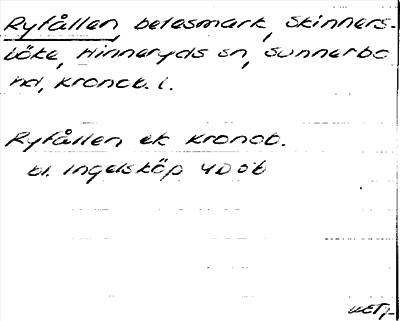 Ryfållen, betesmark, Skinners-
böke, Hinneryds sn, Sunnerbo
hd, Kronob. l.
Ryfållen ek Kronob.
bl. Ingelsköp 4D 0b